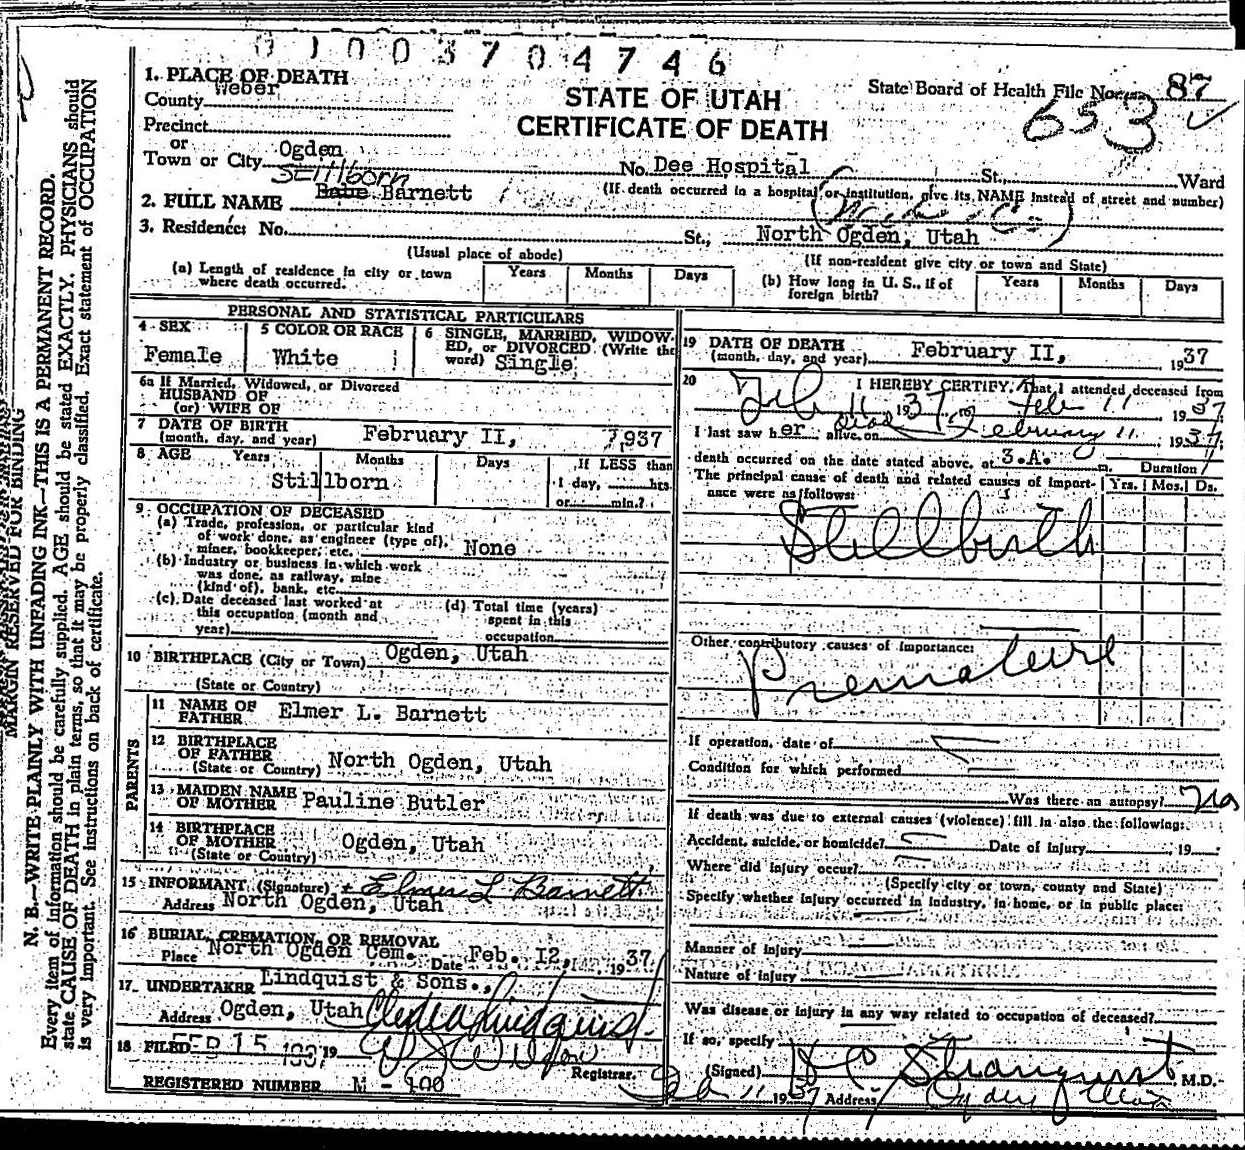 01003704746
1. PLACE OF DEATH
County Weber
Precinct
or
Town or City Ogden
STATE OF UTAH
CERTIFICATE OF DEATH
State Board of Health File No. 87
653
No. Dee Hospital St., Ward
(If death occurred in a hospital or institution, give its NAME instead of street and number)
2. FULL NAME Stillborn Babe Barnett
3. Residence: No. St., North Ogden, Utah
(Usual place of abode)
(If non-resident give city or town and State)
(a) Length of residence in city or town where death occurred. Years Months Days
(b) How long in U. S., if of foreign birth? Years Months Days
PERSONAL AND STATISTICAL PARTICULARS
4 SEX Female
5 COLOR OR RACE White
6 SINGLE, MARRIED, WIDOWED, or DIVORCED (Write the word) Single
6a If Married, Widowed, or Divorced
HUSBAND OF
(or) WIFE OF
7 DATE OF BIRTH
(month, day, and year) February II, 1937
8 AGE Years Months Days If LESS than
Stillborn 1 day, hrs.
or min.?
9 OCCUPATION OF DECEASED
(a) Trade, profession, or particular kind
of work done, as engineer (type of),
miner, bookkeeper, etc. None
(b) Industry or business in which work
was done, as railway, mine
(kind of), bank, etc.
(c) Date deceased last worked at
this occupation (month and
year)
(d) Total time (years)
spent in this
occupation
10 BIRTHPLACE (City or Town) Ogden, Utah
(State or Country)
PARENTS
11 NAME OF
FATHER Elmer L. Barnett
12 BIRTHPLACE
OF FATHER
(State or Country) North Ogden, Utah
13 MAIDEN NAME
OF MOTHER Pauline Butler
14 BIRTHPLACE
OF MOTHER Ogden, Utah
(State or Country)
15 INFORMANT (Signature) Elmer L Barnett
Address North Ogden, Utah
16 BURIAL, CREMATION, OR REMOVAL
Place North Ogden Cem. Date Feb. I2, 1937
17 UNDERTAKER Lindquist & Sons.,
Address Ogden, Utah
18 FILED FEB 15 1937 19
Registrar.
REGISTERED NUMBER M - 100
19 DATE OF DEATH
(month, day, and year) February II, 1937
20 I HEREBY CERTIFY, That I attended deceased from
Feb 11 1937, to Feb 11 1937
I last saw her alive on dead February 11 1937,
death occurred on the date stated above, at 3.A. m.
Duration
The principal cause of death and related causes of importance were as follows:
Yrs. Mos. Ds.
Stillbirth
Other contributory causes of importance:
Premature
If operation, date of
Condition for which performed
Was there an autopsy? No
If death was due to external causes (violence) fill in also the following:
Accident, suicide, or homicide? Date of injury 19
Where did injury occur?
(Specify city or town, county and State)
Specify whether injury occurred in industry, in home, or in public place:
Manner of injury
Nature of injury
Was disease or injury in any way related to occupation of deceased?
If so, specify
(Signed) Stranquist, M.D.
Feb 11 1937 Address Ogden Utah
MARGIN RESERVED FOR BINDING
N. B.—WRITE PLAINLY WITH UNFADING INK—THIS IS A PERMANENT RECORD.
Every item of information should be carefully supplied. AGE should be stated EXACTLY. PHYSICIANS should
state CAUSE OF DEATH in plain terms, so that it may be properly classified. Exact statement of OCCUPATION
is very important. See instructions on back of certificate.